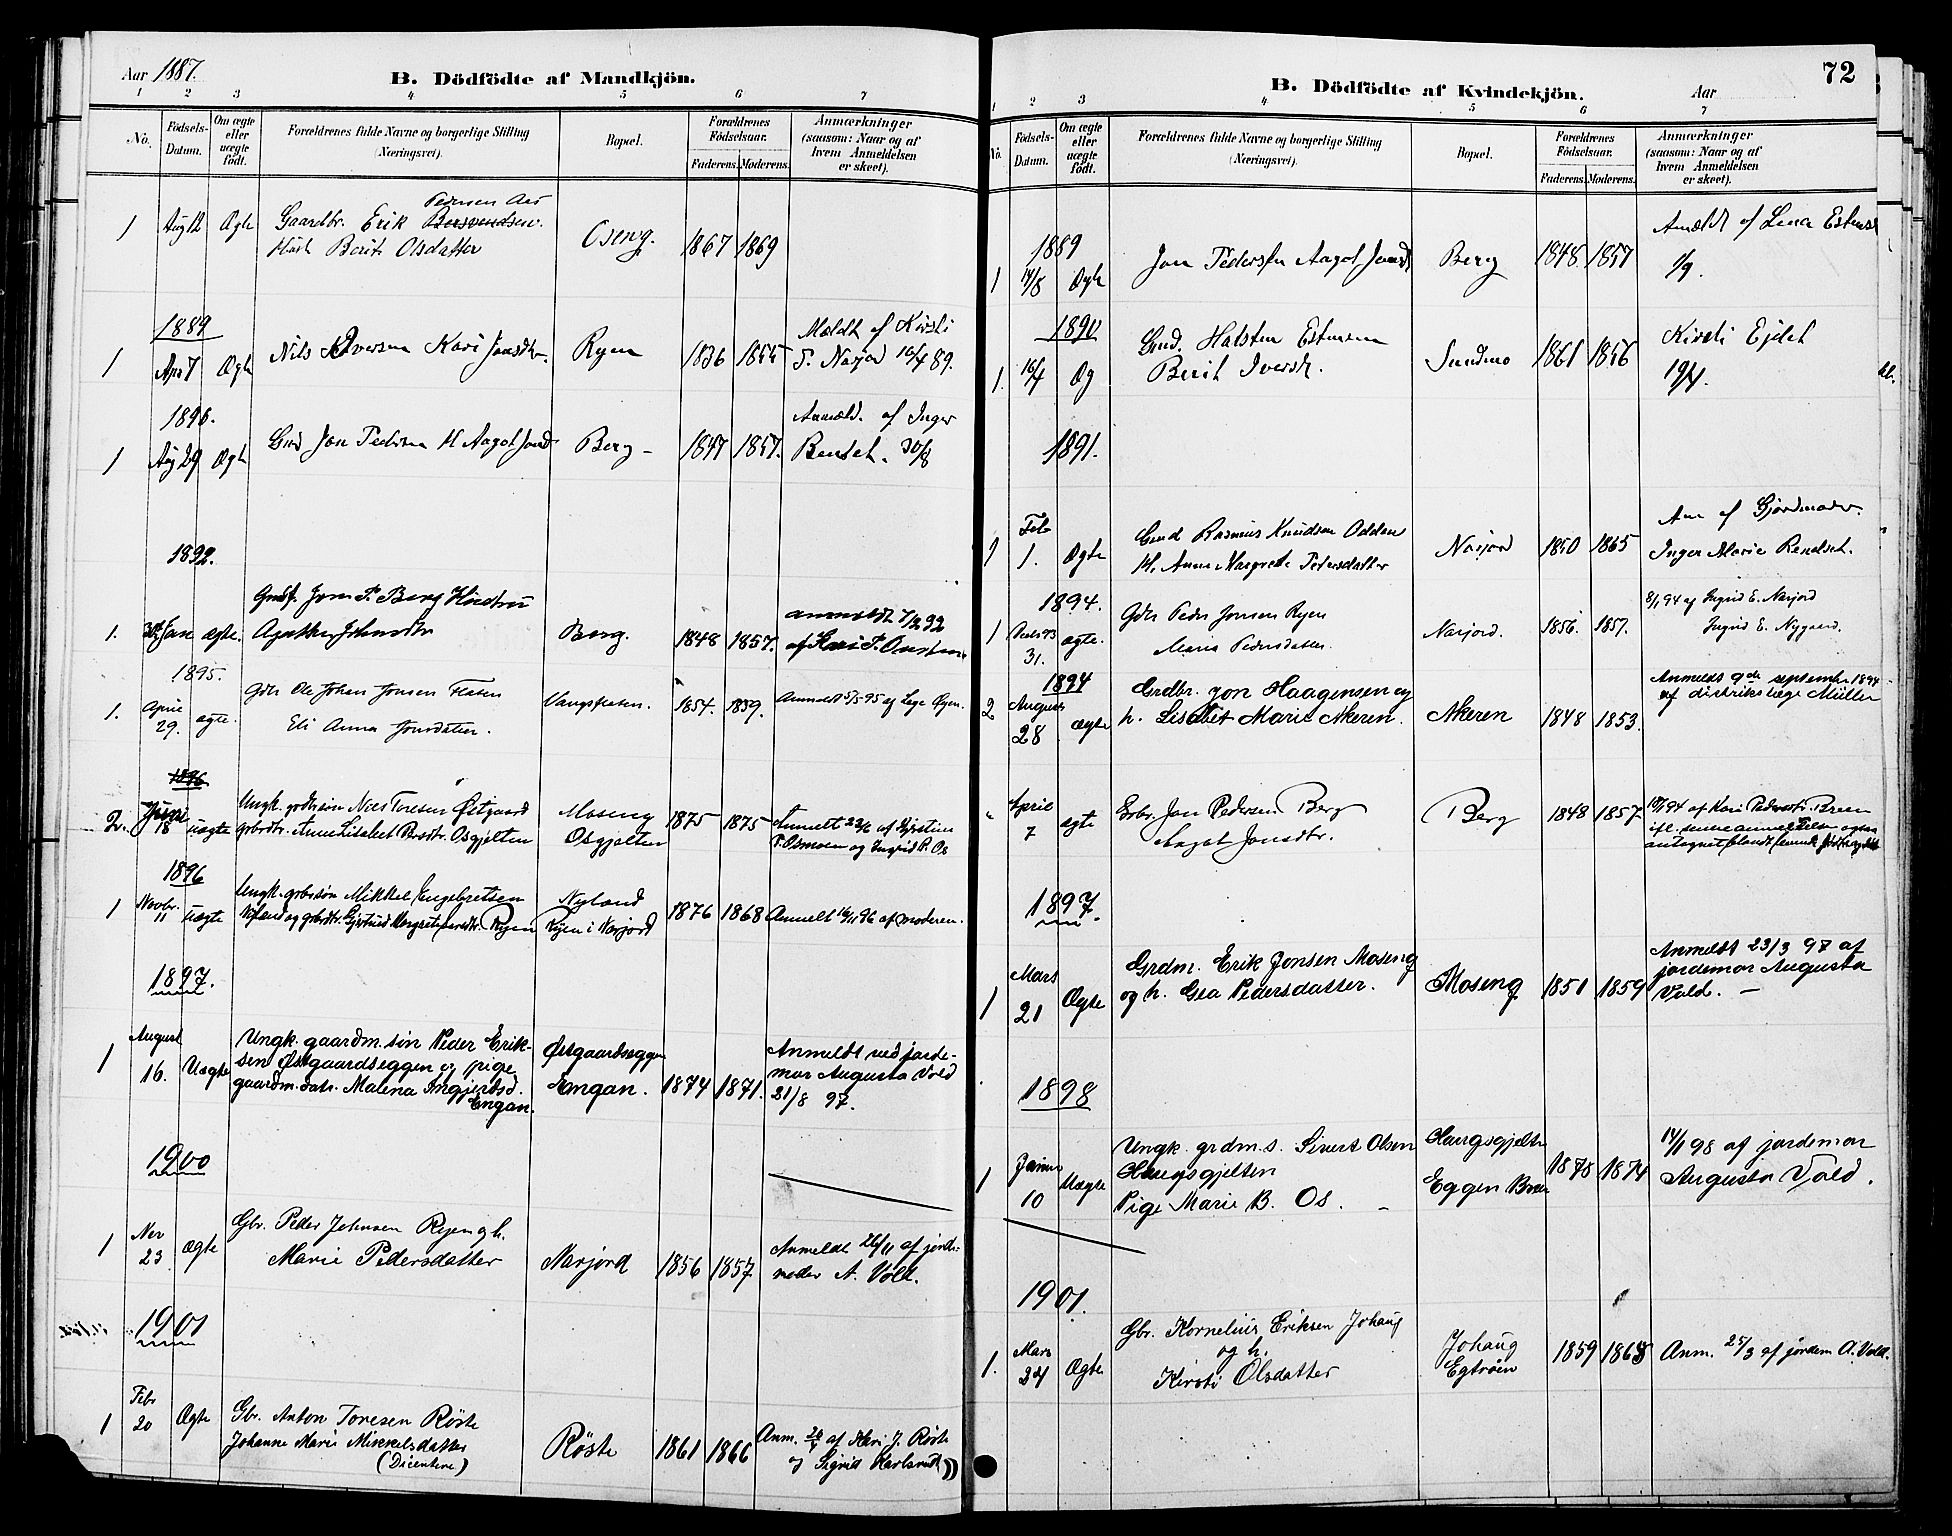 Aar 1887.
B. Dödfödte af Mandkjön.
1 2 3 4 5 6 7
No.
Födsels-Datum.
Om ægte eller uægte födt.
Forældrenes fulde Navne og borgerlige Stilling
(Næringsvei).
Bopæl.
Forældrenes Födselsaar.
Faderens. Moderens.
Anmærkninger
(saasom: Naar og af
hvem Anmeldelsen
er skeet).
Pedersen Aas
1 Aug 12 Ægte Gaardbr. Erik Bersvendsen. Oseng. 1867 1869
Berit Olsdatter
1889
1 Apr 7 Ægte Nils Iversen Kari Jonsdtr. Ryen 1836 1855 Mældt af Kirsti
Narjord 10/4 89.
1890.
1 Aug 29 Ægte Gmd Jon Pedersen H Aagot Jonsd Berg - 1847 1857. Anmæld. af Inger
30/8
1892.
1. 30te Jan ægte. Jon P. Berg Hustru Berg. 1848 1857. anmeldt 7/2 92
af Kari P.
1895.
1. April 29. ægte. Gdbr Ole Johan Jonsen Floten Vangsfloten. 1854. 1859. Anmeldt 5/5 95 af Læge
Eli Anna Jonsdatter.
1896
2. Juni 18 uægte Ungk. gbrsøn Nils Toresen Østgaard Moseng 1875 1875 Anmeldt 22/6 af Kjirstine
grbrdtr. Anne Lisabet Osgjelten Osgjelten P. Osmoen og Ingrid P. Os
1896
1 Novbr. 11 uægte Ungk. grbrsøn Mikkel Engebretsen Nyland 1876 1868 Anmelt 16/11 96 af moderen.
Nyland og grbrdtr. Gjertrud Margrete Ryen Ryen i Narjord
1897.
1 August 16. Uægte Ungk. gaardm. søn Peder Erik- Østgaardseggen 1874 1871. Anmeldt ved jorde-
sen Østgaardseggen og pige Engan. mor Augusta Vold
gaardm. datr. Malena Ingjerbsd. 21/8 97.
Engan.
1900
1 Nov 23 Ægte Gbr. Peder Johnsen Ryen og h. Narjord 1856 1857 Anmeldt 26/11 af jorde-
Marie Pedersdatter moder A. Vold.
1901
1 Febr 20 Ægte Gbr. Anton Toresen Röste Röste 1861 1866 Anm. af Kari J. Röste
Johanne Marie Mikkelsdatter og Sigrid
72
B. Dödfödte af Kvindekjön.
Aar
1 2 3 4 5 6 7
No.
Födsels-Datum.
Om ægte eller uægte födt.
Forældrenes fulde Navne og borgerlige Stilling
(Næringsvei).
Bopæl.
Forældrenes Födselsaar.
Faderens. Moderens.
Anmærkninger
(saasom: Naar og af
hvem Anmeldelsen
er skeet).
1889
1 14/8 Ægte Jon Pedersen Aagot Jonsd Berg 1848. 1857 Anmældt af Lena Estens
1/9.
1890
1. 16/4 Æg Gmd. Halsten Estensen Sundmo 1861 1856 Kirsti Ejdet
Berit Iversdr. 19/4.
1891.
1 Feb 1. Ægte Gmd Rasmus Knudsen Oddan Narjord 1850 1865 Anm af Gjordmoder.
H. Anne Margrete Pedersdatter Inger Marie
1894.
1 Decbr 93 31. ægte. Gdbr Peder Jonsen Ryen Narjord. 1856. 1857. 8/1 94 af Ingrid E. Narjord
Maria Pedersdatter Ingrid E. Nygaard.
1894
2 August 28 ægte Grdbr. Jon Haagensen og Akeren 1848 1853. Anmeldt 9de septembr 1894
h. Lisabet Marie Akeren. af distriktslæge Müller
April 7 ægte Grbr. Jon Pedersen Berg Berg 1848 1857 94 af Kari Pedersdtr. Breen
Aagot Jonsdtr.
1897.
1 Mars 21 Ægte Grdm. Erik Jonsen Moseng Moseng 1851 1859 Anmeldt 23/3 97 af
og h. Gea Pedersdatter. jordemor Augusta
Vold. -
1898
1 Januar 10 Uægte Ungk. grdm.s. Sivert Olsen Haugsgjelten 1878 1874 14/1 98 af jordemor
Haugsgjelten Eggen Breen Augusta Vold.
Pige Marie B. Os. -
1901.
1. Mars 24 Ægte Gbr. Kornelius Eriksen Johaug Johaug 1859 1868 Anm. 25/3 af jordem A. Vold.
og h. Egtröen
Kirsti Olsdatter